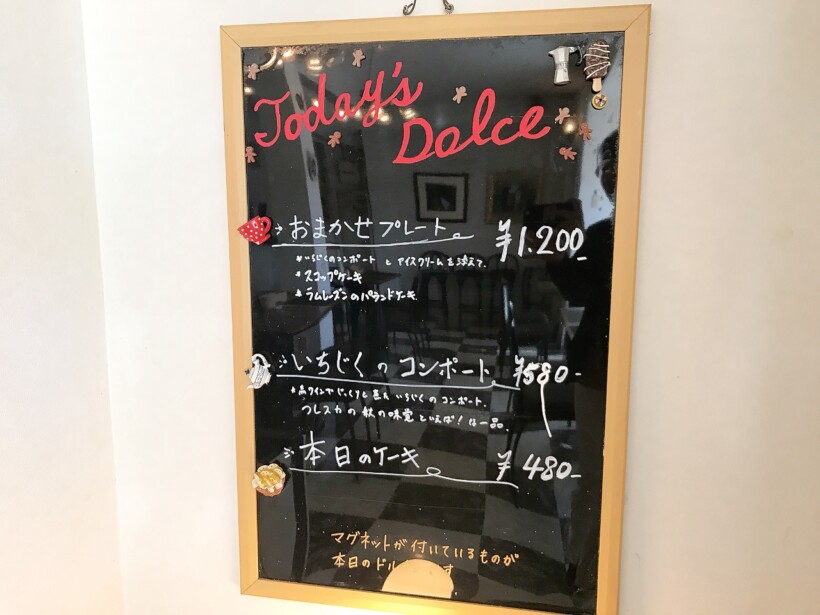 Today's
Dolce
おまかせプレート。 ¥1.200-
*いちじくのコンポートとアイスクリームを添えて.
*スコップケーキ
*ラムレーズンのパウンドケーキ
いちじくのコンポート ¥580-
*赤ワインでじっくりと煮たいちじくのコンポート.
フレスカの秋の味覚といえば!な一品.
本日のケーキ ¥480-
マグネットが付いているものが
本日のドル す